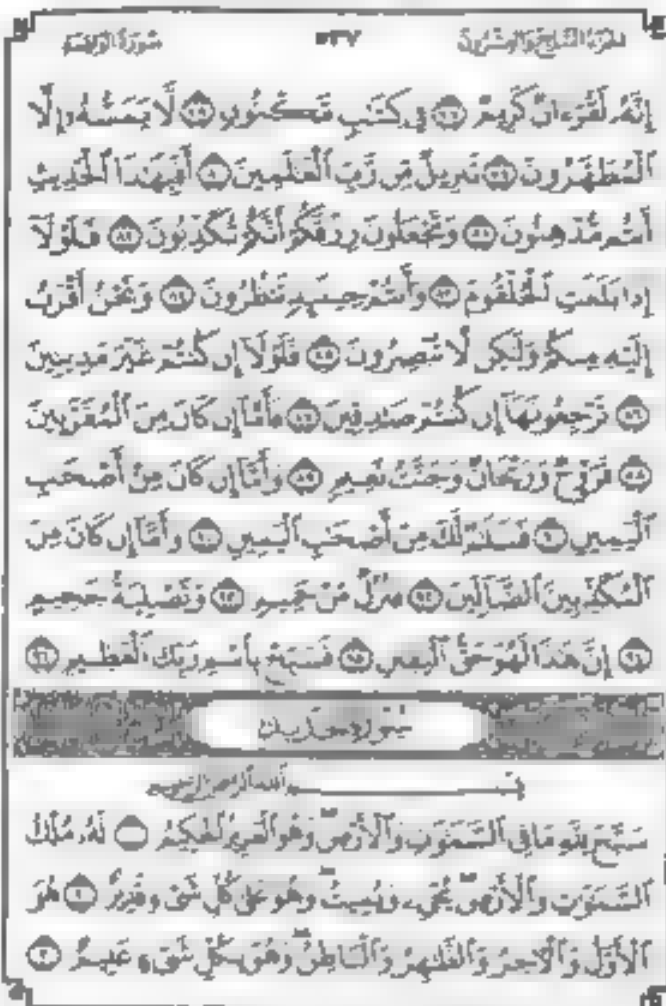 سُورَةُ الوَاقِعَة ٥٣٧ الجُزْءُ السَّابِعُ وَالعِشْرُونَ
إِنَّهُ لَقُرْءَانٌ كَرِيمٌ ٧٧ فِي كِتَٰبٍ مَّكْنُونٍ ٧٨ لَّا يَمَسُّهُۥٓ إِلَّا
ٱلْمُطَهَّرُونَ ٧٩ تَنزِيلٌ مِّن رَّبِّ ٱلْعَٰلَمِينَ ٨٠ أَفَبِهَٰذَا ٱلْحَدِيثِ
أَنتُم مُّدْهِنُونَ ٨١ وَتَجْعَلُونَ رِزْقَكُمْ أَنَّكُمْ تُكَذِّبُونَ ٨٢ فَلَوْلَآ
إِذَا بَلَغَتِ ٱلْحُلْقُومَ ٨٣ وَأَنتُمْ حِينَئِذٍ تَنظُرُونَ ٨٤ وَنَحْنُ أَقْرَبُ
إِلَيْهِ مِنكُمْ وَلَٰكِن لَّا تُبْصِرُونَ ٨٥ فَلَوْلَآ إِن كُنتُمْ غَيْرَ مَدِينِينَ
٨٦ تَرْجِعُونَهَآ إِن كُنتُمْ صَٰدِقِينَ ٨٧ فَأَمَّآ إِن كَانَ مِنَ ٱلْمُقَرَّبِينَ
٨٨ فَرَوْحٌ وَرَيْحَانٌ وَجَنَّتُ نَعِيمٍ ٨٩ وَأَمَّآ إِن كَانَ مِنْ أَصْحَٰبِ
ٱلْيَمِينِ ٩٠ فَسَلَٰمٌ لَّكَ مِنْ أَصْحَٰبِ ٱلْيَمِينِ ٩١ وَأَمَّآ إِن كَانَ مِنَ
ٱلْمُكَذِّبِينَ ٱلضَّآلِّينَ ٩٢ فَنُزُلٌ مِّنْ حَمِيمٍ ٩٣ وَتَصْلِيَةُ جَحِيمٍ
٩٤ إِنَّ هَٰذَا لَهُوَ حَقُّ ٱلْيَقِينِ ٩٥ فَسَبِّحْ بِٱسْمِ رَبِّكَ ٱلْعَظِيمِ ٩٦
سُورَةُ الحَدِيد
بِسْمِ ٱللَّهِ ٱلرَّحْمَٰنِ ٱلرَّحِيمِ
سَبَّحَ لِلَّهِ مَا فِى ٱلسَّمَٰوَٰتِ وَٱلْأَرْضِ ۖ وَهُوَ ٱلْعَزِيزُ ٱلْحَكِيمُ ١ لَهُۥ مُلْكُ
ٱلسَّمَٰوَٰتِ وَٱلْأَرْضِ ۖ يُحْىِۦ وَيُمِيتُ ۖ وَهُوَ عَلَىٰ كُلِّ شَىْءٍ قَدِيرٌ ٢ هُوَ
ٱلْأَوَّلُ وَٱلْءَاخِرُ وَٱلظَّٰهِرُ وَٱلْبَاطِنُ ۖ وَهُوَ بِكُلِّ شَىْءٍ عَلِيمٌ ٣